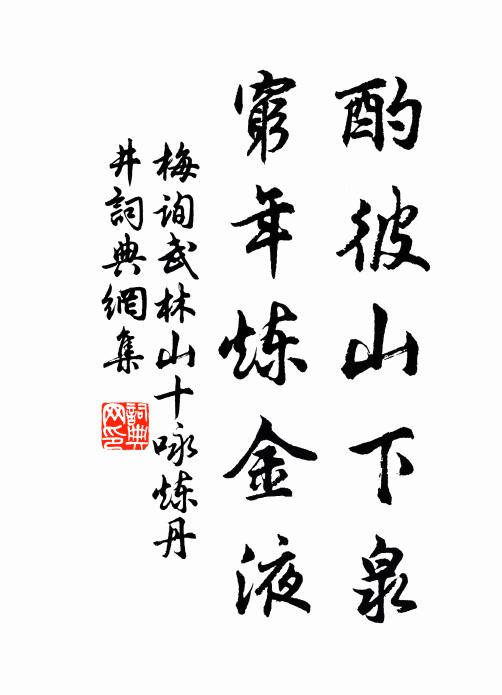 酌彼山下泉
窮年炼金液
梅询武林山十咏炼丹
井詞典網集
詞典
网印